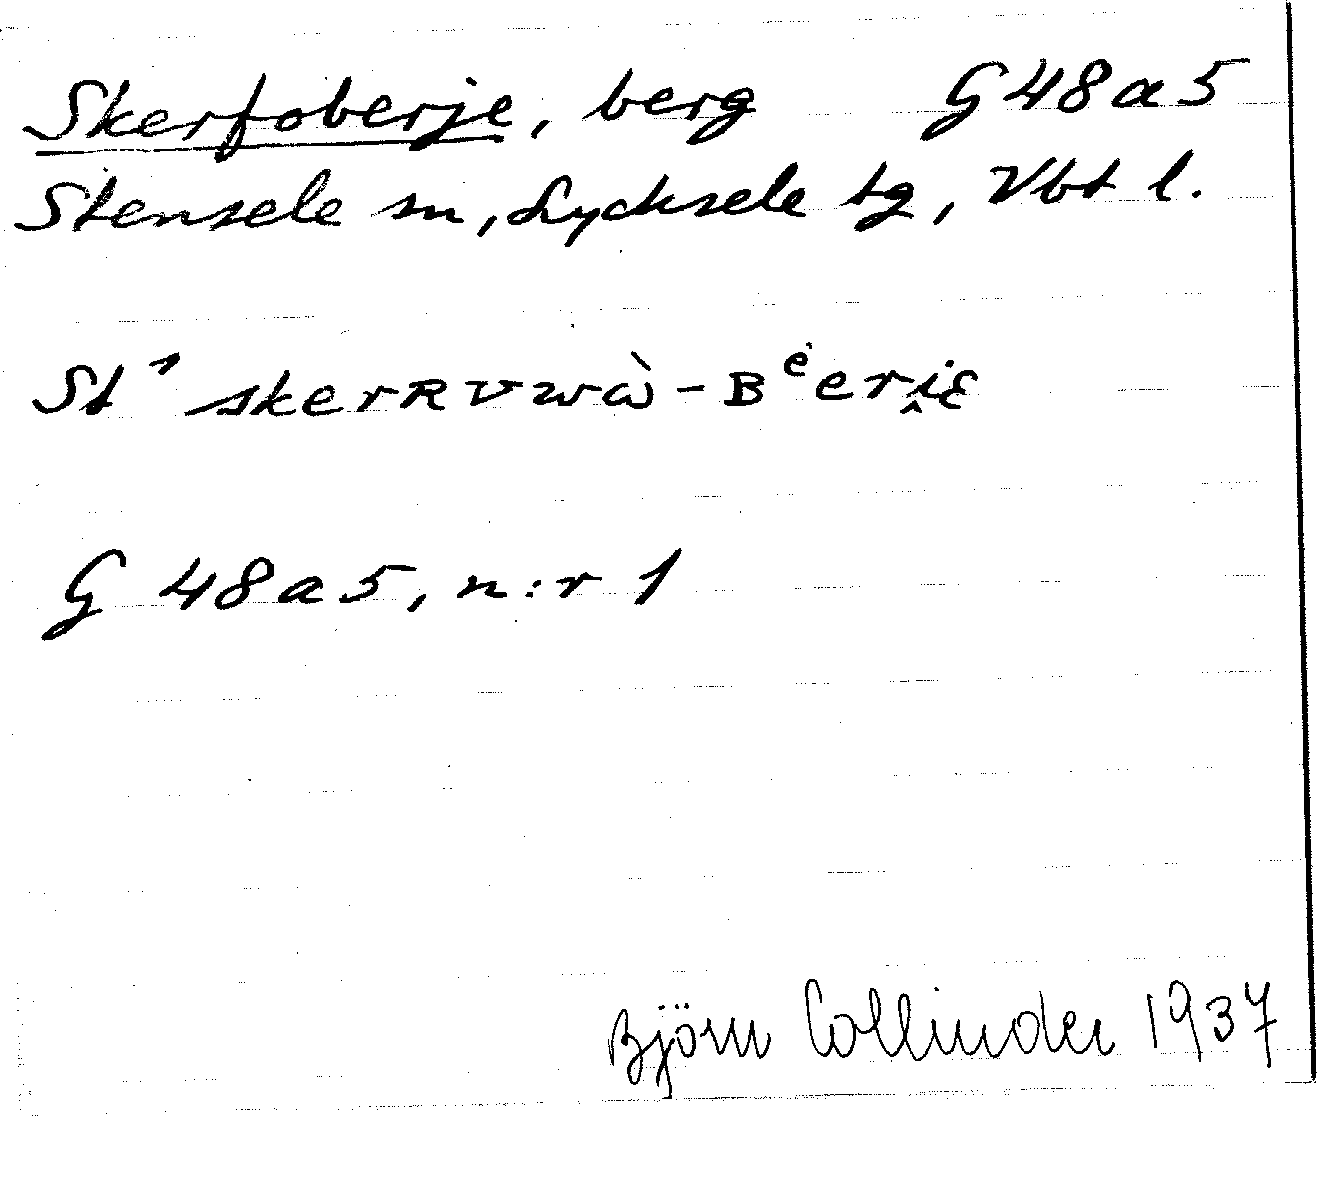 Skerfoberje, berg G48a5
Stensele sn, Lycksele tg, Vbt l.
St ´ skerRVwà-Bėeri̭ɛ
G 48a5, n:r 1
Björn Collinder 1937